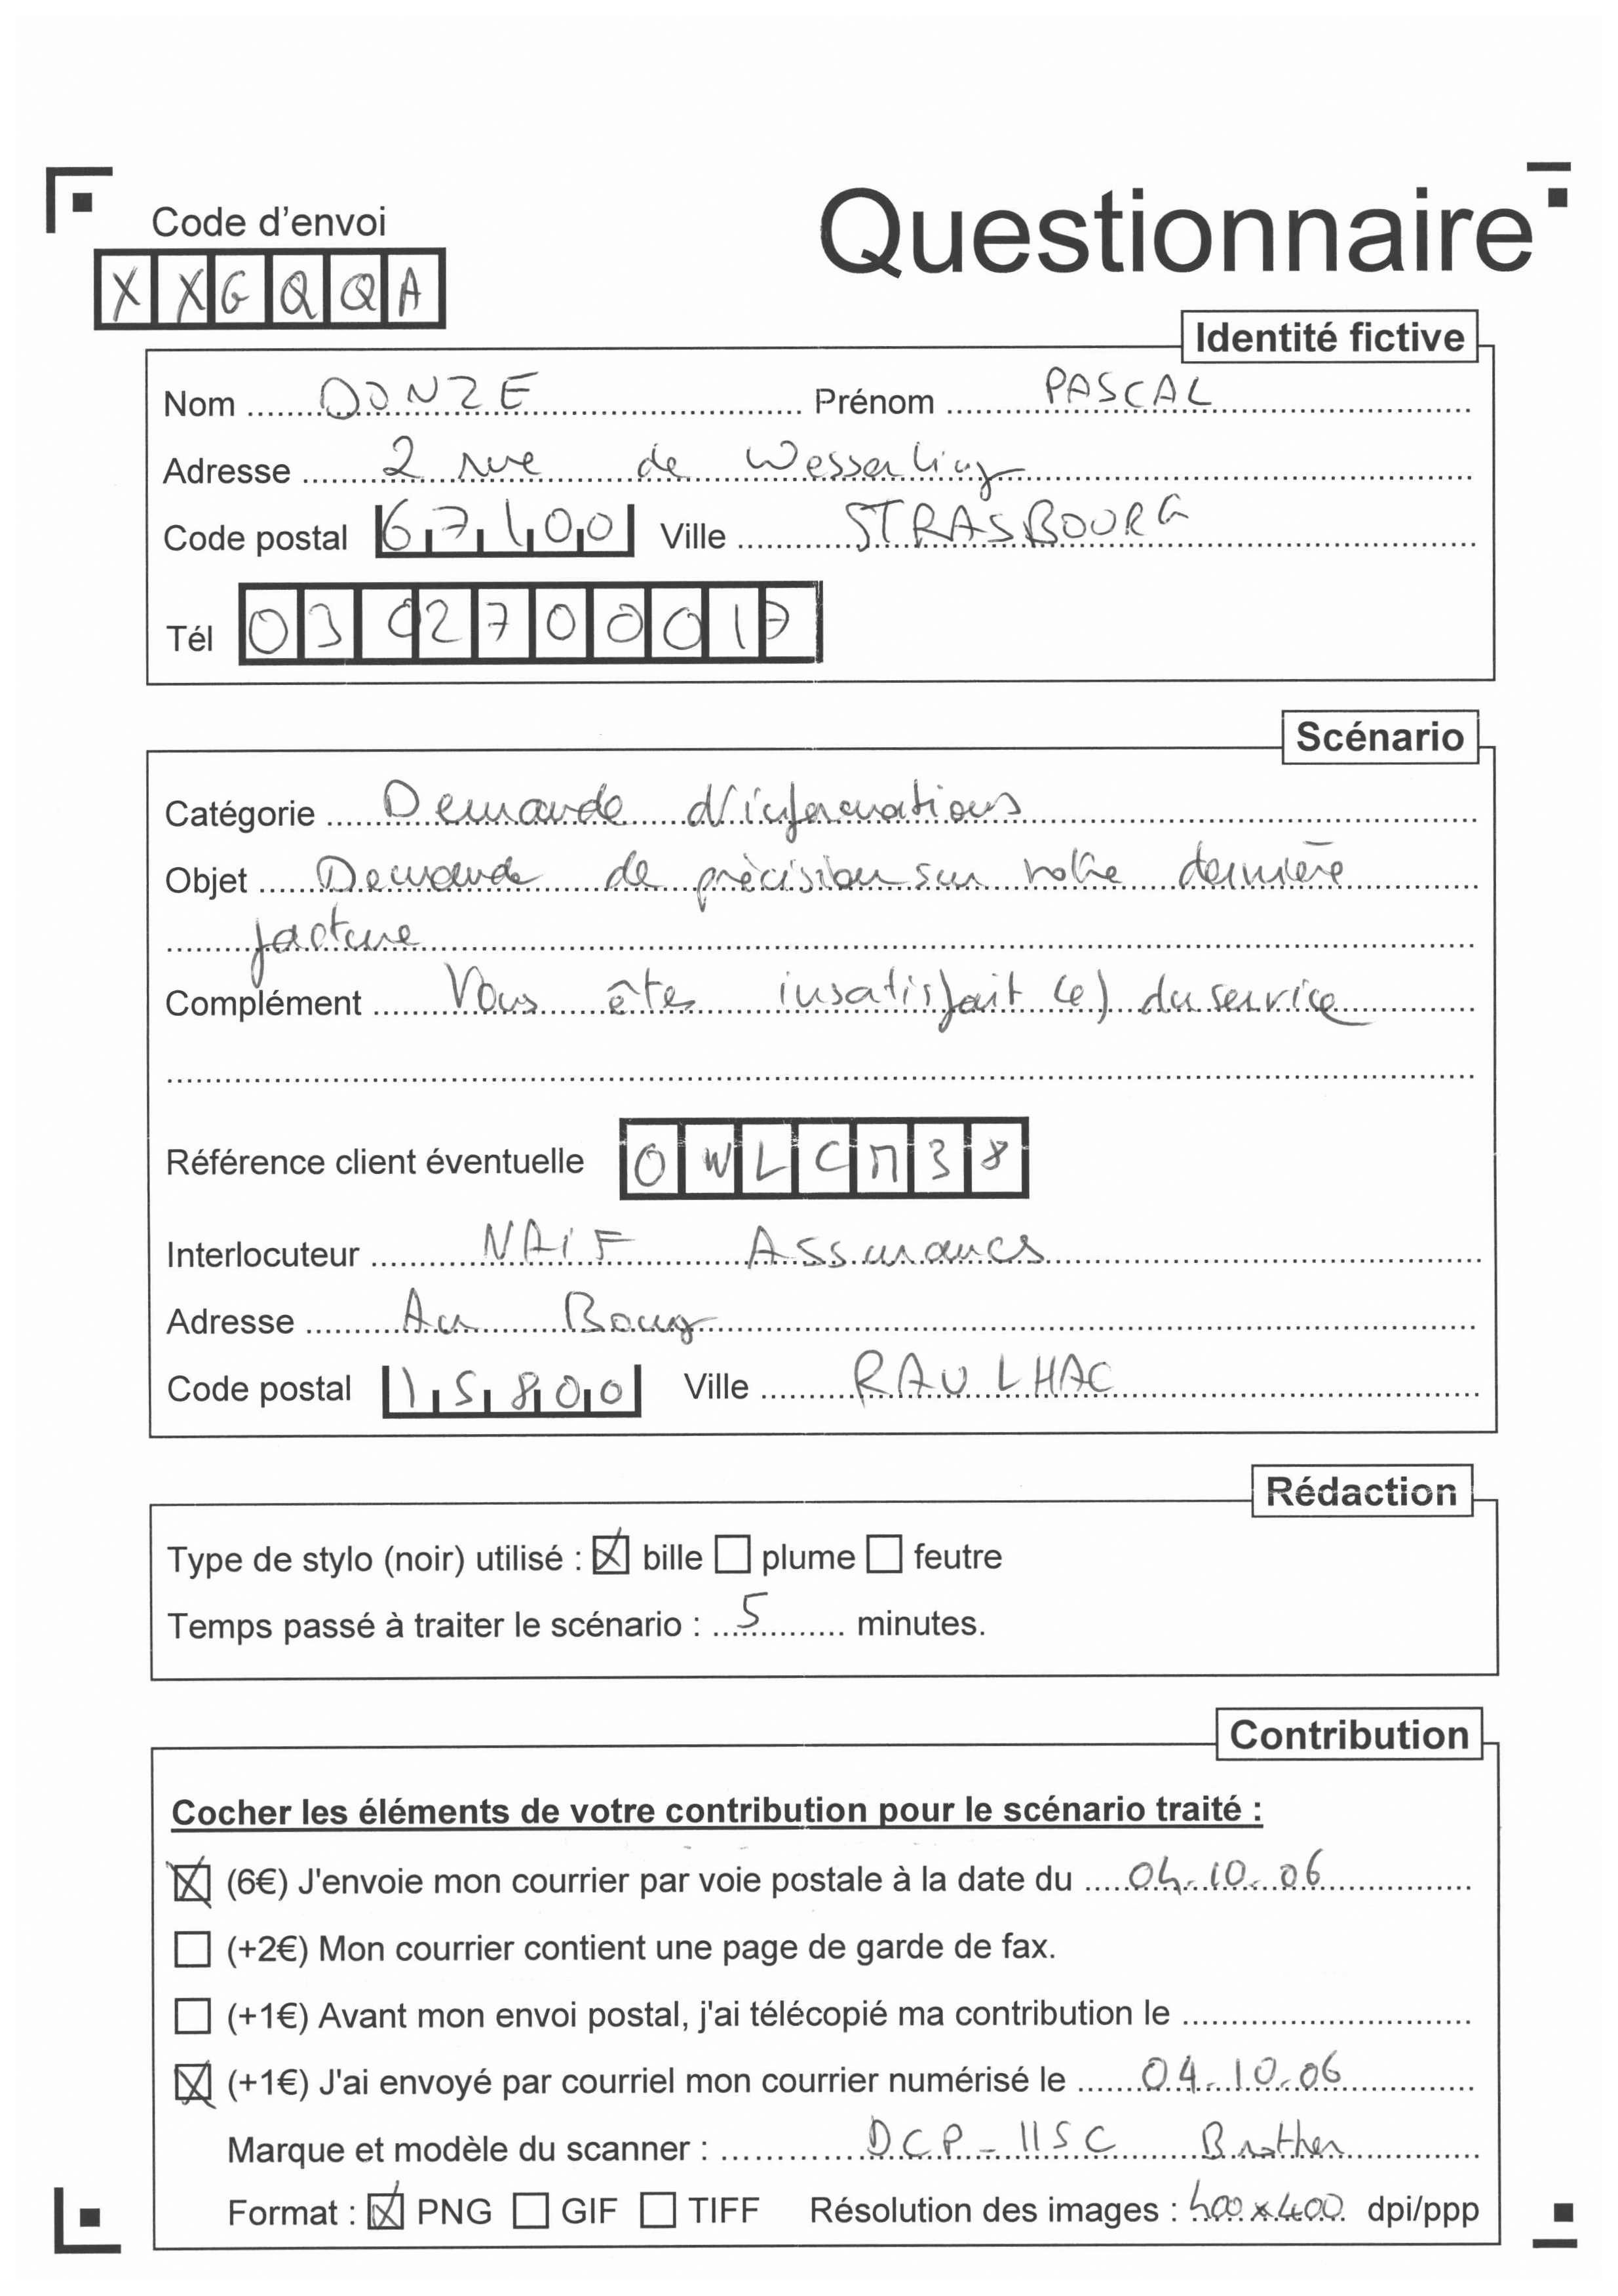 Code d'envoi
Questionnaire
XXGQQA
Identité fictive
Nom DONZE Prénom PASCAL
Adresse 2 rue de Wesserling
Code postal 67100 Ville STRASBOURG
Tél 03 02700017
Scénario
Catégorie Demande d'informations
Objet Demande de précision sur votre dernière
facture
Complément Vous êtes insatisfait (e) du service
Référence client éventuelle OWLCM38
Interlocuteur NAIF Assurances
Adresse Au Bourg
Code postal 15800 Ville RAULHAC
Rédaction
Type de stylo (noir) utilisé : ☒ bille ☐ plume ☐ feutre
Temps passé à traiter le scénario : 5 minutes.
Contribution
Cocher les éléments de votre contribution pour le scénario traité :
☒ (6€) J'envoie mon courrier par voie postale à la date du 04.10.06
☐ (+2€) Mon courrier contient une page de garde de fax.
☐ (+1€) Avant mon envoi postal, j'ai télécopié ma contribution le
☒ (+1€) J'ai envoyé par courriel mon courrier numérisé le 04.10.06
Marque et modèle du scanner : DCP-115C Brother
Format : ☒ PNG ☐ GIF ☐ TIFF Résolution des images : 400x400 dpi/ppp